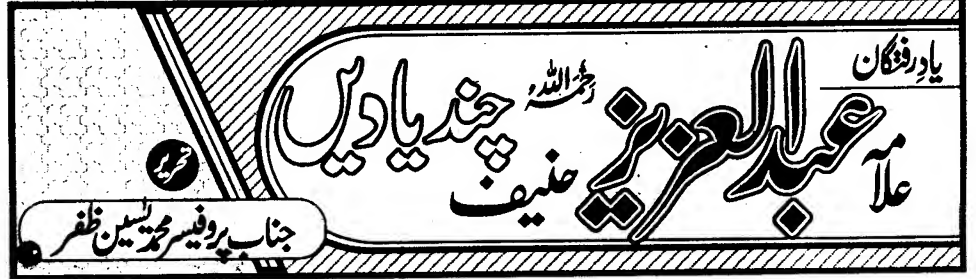 یادِ رفتگان
علامہ عبدالعزیز حنیف رحمہ اللہ چند یادیں
تحریر
جناب پروفیسر محمد یٰسین ظفر